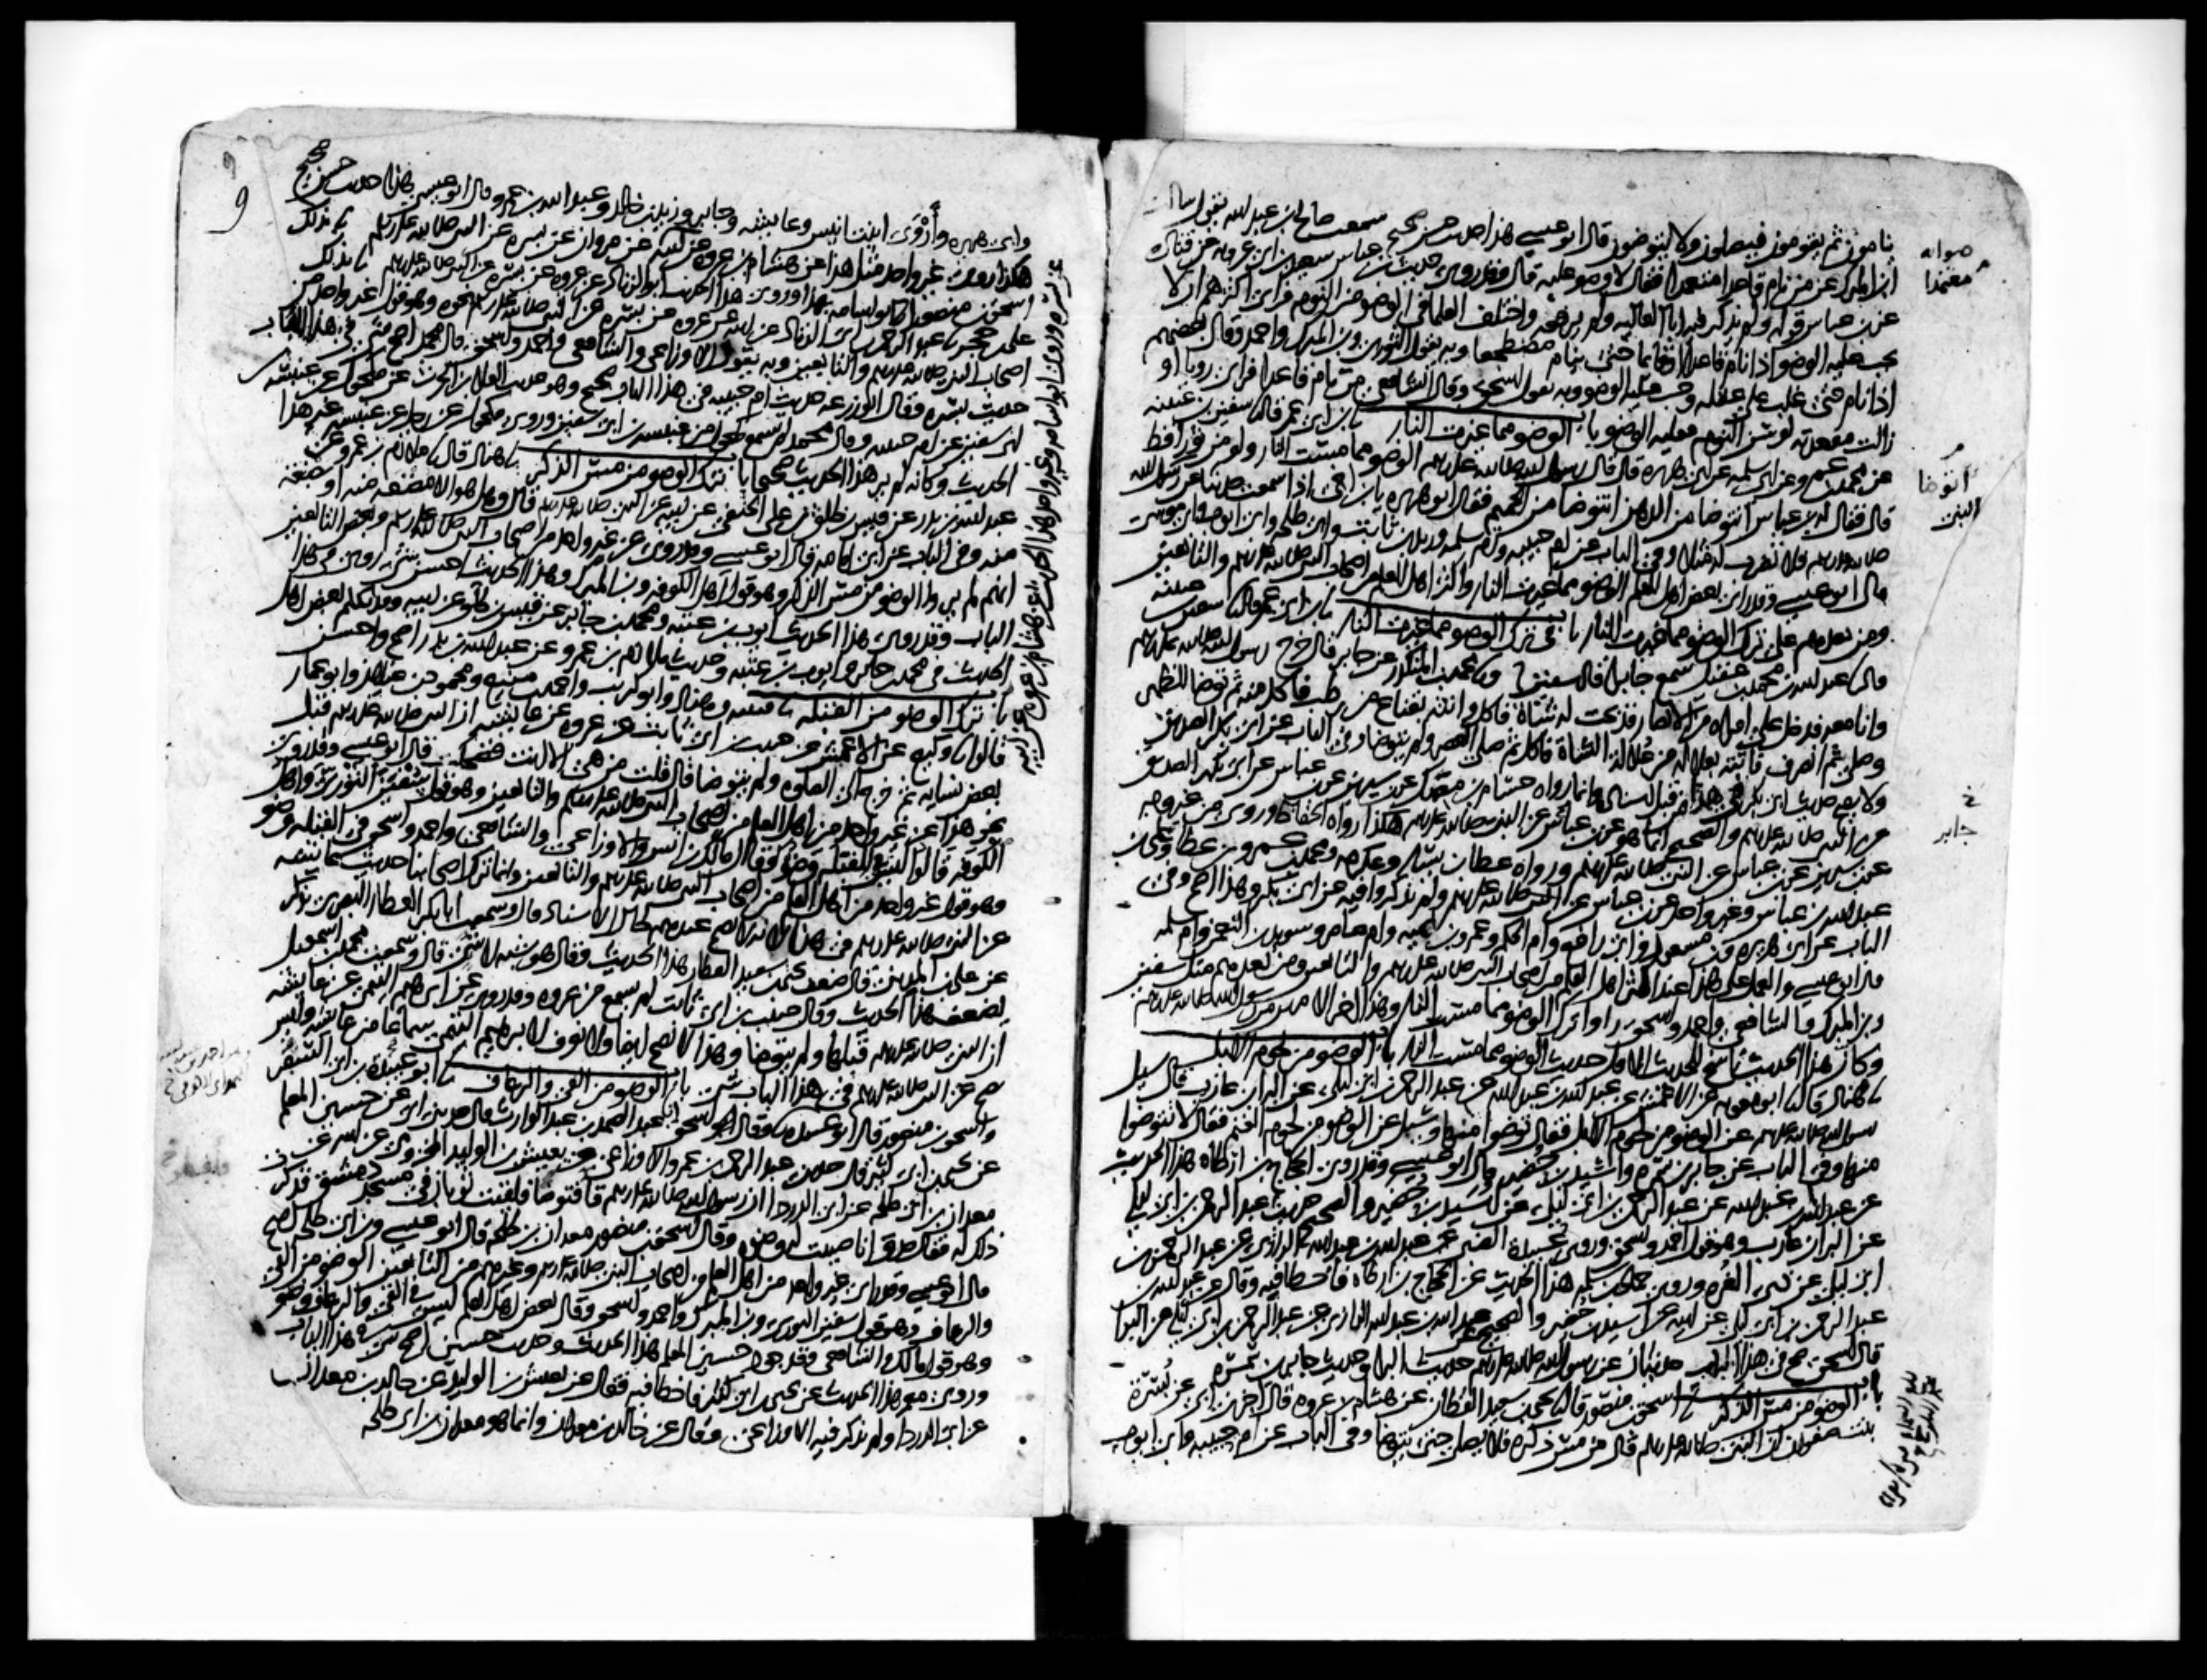 ينامون ثم يقومون فيصلون ولا يتوضون قال ابو عيسى هذا حديث حسن صحيح سمعت صالح بن عبد الله يقول سالت
ابن المبرك عن من نام قاعدا متعمدا فقال لا وضو عليه قال وقد روى حديث بن عباس سعيد بن ابي عروبه عن قتاده
عن بن عباس قوله ولم يذكر فيه ابا العاليه ولم يرفعه واختلف العلما في الوضو من النوم فراى اكثرهم ان لا
يجب عليه الوضو اذا نام قاعدا او قايما حتى ينام مضطجعا وبه يقول الثوري وبن المبرك واحمد وقال بعضهم
اذا نام حتى غلب على عقله وجب عليه الوضو وبه يقول اسحق وقال الشافعي من نام قاعدا فراى رويا او
زالت مقعدته لوسن النوم فعليه الوضو باب الوضو مما غيرت النار نا ابن ابي عمر قال نا سفين بن عيينه
عن محمد بن عمرو عن ابي سلمه عن ابي هريره قال قال رسول الله صلى الله عليه وسلم الوضو مما مست النار ولو من ثور اقط
قال فقال له بن عباس انتوضا من الدهن انتوضا من الحميم فقال ابو هريره يا بن اخي اذا سمعت حديثا عن رسول الله
صلى الله عليه وسلم فلا تضرب له مثلا وفي الباب عن ام حبيبه وام سلمه وزيد بن ثابت وابي طلحه وابي ايوب وابي موسى
قال ابو عيسى وقد راى بعض اهل العلم الوضو مما غيرت النار واكثر اهل العلم من اصحاب النبي صلى الله عليه وسلم والتابعين
ومن بعدهم على ترك الوضو مما غيرت النار باب في ترك الوضو مما غيرت النار نا بن ابي عمر قال نا سفين بن عيينه
قال نا عبد الله بن محمد بن عقيل سمع جابرا قال سفين ونا محمد بن المنكدر عن جابر قال خرج رسول الله صلى الله عليه وسلم
وانا معه فدخل على امراه من الانصار فذبحت له شاة فاكل واتته بقناع من رطب فاكل منه ثم توضا للظهر
وصلى ثم انصرف فاتته بعلاله من علالة الشاة فاكل ثم صلى العصر ولم يتوضا وفي الباب عن ابي بكر الصديق
ولا يصح حديث ابي بكر في هذا من قبل اسناده انما رواه حسام بن مصك عن بن سيرين عن بن عباس عن ابي بكر الصديق
عن النبي صلى الله عليه وسلم والصحيح انما هو عن بن عباس عن النبي صلى الله عليه وسلم هكذا رواه الحفاظ وروي من غير وجه
عن بن سيرين عن بن عباس عن النبي صلى الله عليه وسلم ورواه عطا بن يسار وعكرمه ومحمد بن عمرو بن عطا وعلي بن
عبد الله بن عباس وغير واحد عن بن عباس عن النبي صلى الله عليه وسلم ولم يذكروا فيه عن ابي بكر وهذا اصح وفي
الباب عن ابي هريره وبن مسعود وابي رافع وام الحكم وعمرو بن اميه وام عامر وسويد بن النعمن وام سلمه
قال ابو عيسى والعمل على هذا عند اكثر اهل العلم من اصحاب النبي صلى الله عليه وسلم والتابعين ومن بعدهم مثل سفين
وبن المبرك والشافعي واحمد واسحق راوا ترك الوضو مما مست النار وهذا اخر الامرين من رسول الله صلى الله عليه وسلم
وكان هذا الحديث ناسخ للحديث الاول حديث الوضو مما مست النار باب الوضو من لحوم الابل
نا هناد قال نا ابو معويه عن الاعمش عن عبد الله بن عبد الله عن عبد الرحمن بن ابي ليلى عن البرا بن عازب قال سيل
رسول الله صلى الله عليه وسلم عن الوضو من لحوم الابل فقال توضوا منها وسيل عن الوضو من لحوم الغنم فقال لا تتوضوا
منها وفي الباب عن جابر بن سمرة واسيد بن حضير قال ابو عيسى وقد روى الحجاج بن ارطاه هذا الحديث
عن عبد الله بن عبد الله عن عبد الرحمن بن ابي ليلى عن اسيد بن حضير والصحيح حديث عبد الرحمن بن ابي ليلى
عن البرا بن عازب وهو قول احمد واسحق وروى عبيدة الضبي عن عبد الله بن عبد الله الرازي عن عبد الرحمن بن
ابي ليلى عن ذي الغره وروى حماد بن سلمه هذا الحديث عن الحجاج بن ارطاه فاخطا فيه وقال عن عبد الله بن
عبد الرحمن بن ابي ليلى عن ابيه عن اسيد بن حضير والصحيح عن عبد الله بن عبد الله الرازي عن عبد الرحمن بن ابي ليلى عن البرا
قال اسحق صح في هذا الباب حديثان عن رسول الله صلى الله عليه وسلم حديث البرا وحديث جابر بن سمره
باب الوضو من مس الذكر نا اسحق بن منصور قال نا يحيى بن سعيد القطان عن هشام بن عروه قال اخبرني ابي عن بسرة
بنت صفوان ان النبي صلى الله عليه وسلم قال من مس ذكره فلا يصل حتى يتوضا وفي الباب عن ام حبيبه وابي ايوب
صوابه
معتمدا
انتوضا
جابر
9
وابي هريره وأروى ابنت انيس وعايشه وجابر وزيد بن خالد وعبد الله بن عمرو قال ابو عيسى هذا حديث حسن صحيح
هكذا روى غير واحد مثل هذا عن هشام بن عروه عن ابيه عن مروان عن بسره عن النبي صلى الله عليه وسلم نا بذلك
اسحق بن منصور نا ابو اسامه بهذا وروى هذا الحديث ابو الزناد عن عروه عن بسره عن النبي صلى الله عليه وسلم نا بذلك
علي بن حجر نا عبد الرحمن بن ابي الزناد عن ابيه عن عروه عن بسره عن النبي صلى الله عليه وسلم نحوه وهو قول غير واحد من
اصحاب النبي صلى الله عليه وسلم والتابعين وبه يقول الاوزاعي والشافعي واحمد واسحق قال محمد اصح شي في هذا الباب
حديث بسره وقال ابو زرعه حديث ام حبيبه في هذا الباب صحيح وهو حديث العلا بن الحرث عن مكحول عن عنبسه بن
ابي سفين عن ام حبيبه وقال محمد لم يسمع مكحول من عنبسه بن ابي سفين وروى مكحول عن رجل عن عنبسه غير هذا
الحديث وكانه لم ير هذا الحديث صحيحا باب ترك الوضو من مس الذكر نا هناد قال نا ملازم بن عمرو عن
عبد الله بن بدر عن قيس بن طلق بن علي الحنفي عن ابيه عن النبي صلى الله عليه وسلم قال وهل هو الا مضغه منه او بضعه
منه وفي الباب عن ابي امامه قال ابو عيسى وقد روى عن غير واحد من اصحاب النبي صلى الله عليه وسلم وبعض التابعين
انهم لم يروا الوضو من مس الذكر وهو قول اهل الكوفه وبن المبرك وهذا الحديث احسن شي روي في هذا
الباب وقد روى هذا الحديث ايوب بن عتبه ومحمد بن جابر عن قيس بن طلق عن ابيه وقد تكلم بعض اهل
الحديث في محمد بن جابر وايوب بن عتبه وحديث ملازم بن عمرو عن عبد الله بن بدر اصح واحسن
باب ترك الوضو من القبله نا قتيبه وهناد وابو كريب واحمد بن منيع ومحمود بن غيلان وابو عمار
قالوا نا وكيع عن الاعمش عن حبيب بن ابي ثابت عن عروه عن عايشه ان النبي صلى الله عليه وسلم قبل
بعض نسايه ثم خرج الى الصلاه ولم يتوضا قال قلت من هي الا انت فضحكت قال ابو عيسى وقد روى
نحو هذا عن غير واحد من اهل العلم من اصحاب النبي صلى الله عليه وسلم والتابعين وهو قول سفين الثوري واهل
الكوفه قالوا ليس في القبله وضو وقال مالك بن انس والاوزاعي والشافعي واحمد واسحق في القبله وضو
وهو قول غير واحد من اهل العلم من اصحاب النبي صلى الله عليه وسلم والتابعين وانما ترك اصحابنا حديث عايشه
عن النبي صلى الله عليه وسلم في هذا لانه لا يصح عندهم لحال الاسناد قال وسمعت ابا بكر العطار البصري يذكر
عن علي بن المديني قال ضعف يحيى بن سعيد القطان هذا الحديث وقال هو شبه لا شي قال وسمعت محمد بن اسمعيل
يضعف هذا الحديث وقال حبيب بن ابي ثابت لم يسمع من عروه وقد روى عن ابرهيم التيمي عن عايشه
ان النبي صلى الله عليه وسلم قبلها ولم يتوضا وهذا لا يصح ايضا ولا نعرف لابرهيم التيمي سماعا من عايشه وليس
يصح عن النبي صلى الله عليه وسلم في هذا الباب شي باب الوضو من القي والرعاف نا ابو عبيدة بن ابي السفر
واسحق بن منصور قال ابو عبيده نا وقال اسحق انا عبد الصمد بن عبد الوارث قال حدثني ابي عن حسين المعلم
عن يحيى بن ابي كثير قال حدثني عبد الرحمن بن عمرو الاوزاعي عن يعيش بن الوليد المخزومي عن ابيه عن
معدان بن ابي طلحه عن ابي الدردا ان رسول الله صلى الله عليه وسلم قا فتوضا فلقيت ثوبان في مسجد دمشق فذكرت
ذلك له فقال صدق انا صببت له وضوه وقال اسحق بن منصور معدان بن طلحه قال ابو عيسى وبن ابي طلحه اصح
قال ابو عيسى وقد راى غير واحد من اهل العلم من اصحاب النبي صلى الله عليه وسلم وغيرهم من التابعين الوضو من القي
والرعاف وهو قول سفين الثوري وبن المبرك واحمد واسحق وقال بعض اهل العلم ليس في القي والرعاف وضو
وهو قول مالك والشافعي وقد جود حسين المعلم هذا الحديث وحديث حسين اصح شي في هذا الباب
وروى معمر هذا الحديث عن يحيى بن ابي كثير فاخطا فيه فقال عن يعيش بن الوليد عن خالد بن معدان
عن ابي الدردا ولم يذكر فيه الاوزاعي وقال عن خالد بن معدان وانما هو معدان بن ابي طلحه